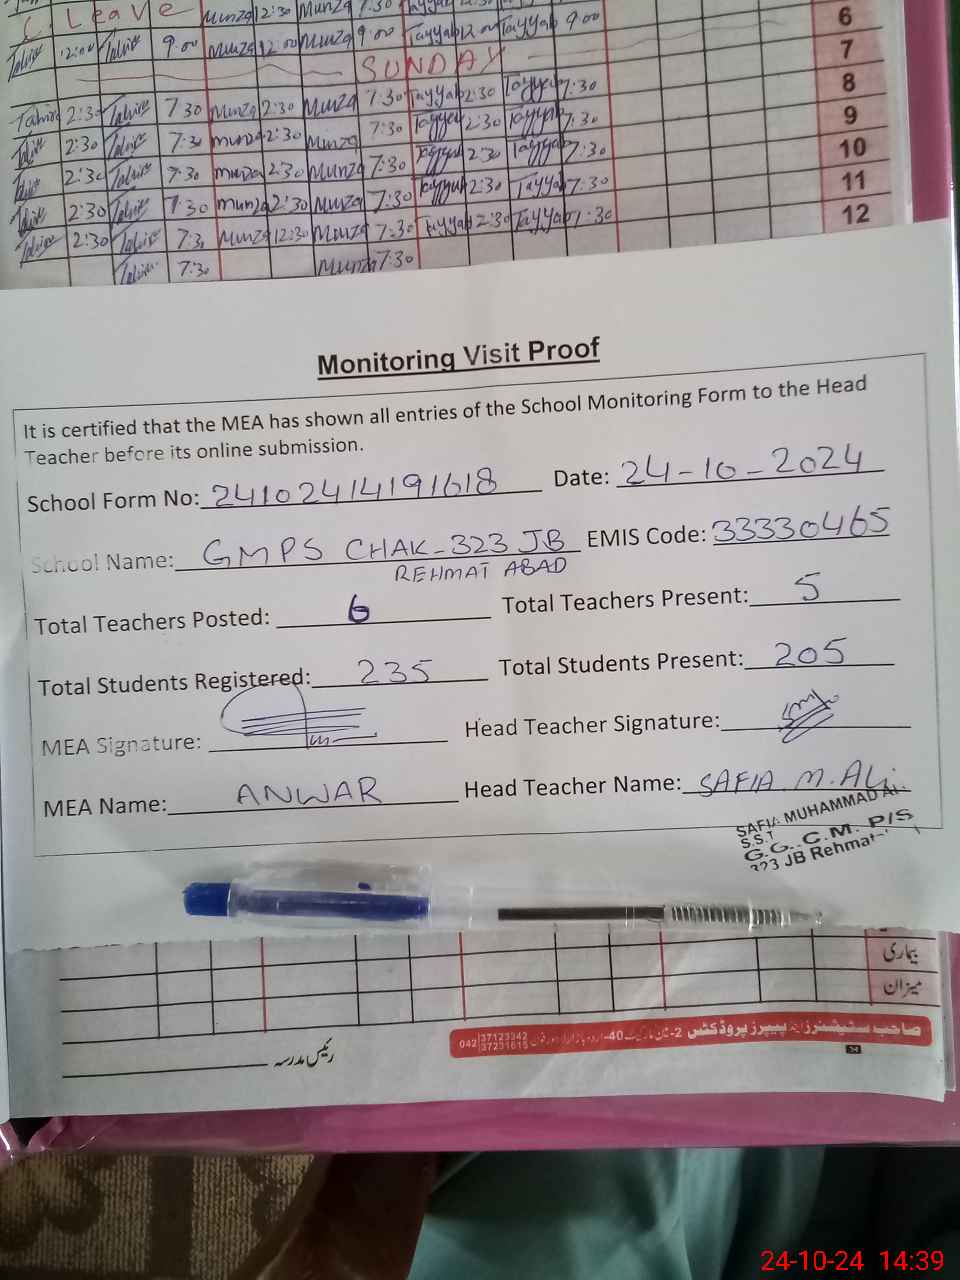 C. Leave Munza 12:30 Munza 7:30 6
Tahira 12:00 Tahira 9:00 Munza 12:00 Munza 9:00 Tayyab 12:00 Tayyab 9:00 7
SUNDAY 8
Tahira 2:30 Tahira 7:30 Munza 2:30 Munza 7:30 Tayyab 2:30 Tayyab 7:30 9
Tahira 2:30 Tahira 7:30 Munza 2:30 Munza 7:30 Tayyab 2:30 Tayyab 7:30 10
Tahira 2:30 Tahira 7:30 Munza 2:30 Munza 7:30 Tayyab 2:30 Tayyab 7:30 11
Tahira 2:30 Tahira 7:30 Munza 2:30 Munza 7:30 Tayyab 2:30 Tayyab 7:30 12
Tahira 2:30 Tahira 7:3 Munza 12:30 Munza 7:30 Tayyab 2:30 Tayyab 7:30
Tahira 7:30 Munza 7:30
Monitoring Visit Proof
It is certified that the MEA has shown all entries of the School Monitoring Form to the Head
Teacher before its online submission.
School Form No: 24102414191618 Date: 24-10-2024
School Name: GMPS CHAK-323 JB EMIS Code: 33330465
REHMAT ABAD
Total Teachers Posted: 6 Total Teachers Present: 5
Total Students Registered: 235 Total Students Present: 205
MEA Signature: Head Teacher Signature:
MEA Name: ANWAR Head Teacher Name: SAFIA M. ALi
SAFIA MUHAMMAD AL
S.S.T
G.G.C.M. P/S
323 JB Rehmat
بیماری
میزان
صاحب سٹیشنرز اینڈ پیپرز پروڈکٹس 2- 40-
042 37123342
37231615
رئیس مدرسہ
24-10-24 14:39